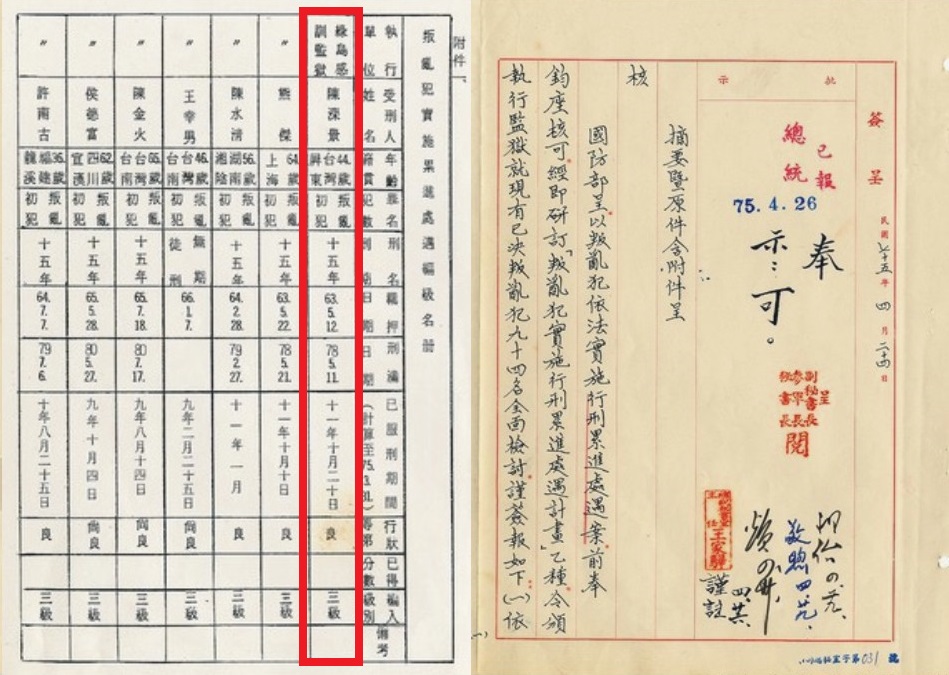 附件一、
叛亂犯實施累進處遇編級名册
執行單位 受刑人姓名 年齡籍貫 罪名犯數 刑名刑期 羈押日期 刑滿日期 已服刑期間(計算至75.3.31.) 行狀等第 已得分數 編入級別 備考
綠島感訓監獄 陳深景 44歲台灣屏東 叛亂初犯 十五年 63.5.12. 78.5.11. 十一年十月二十日 良 三級
〃 熊傑 64歲上海 叛亂初犯 十五年 63.5.22. 78.5.21. 十一年十月十日 良 三級
〃 陳水清 56歲湖南湘陰 叛亂初犯 十五年 64.2.28. 79.2.27. 十一年一月 良 三級
〃 王幸男 46歲台灣台南 叛亂初犯 無期徒刑 66.1.7. 九年二月二十五日 尚良 三級
〃 陳金火 65歲台灣台南 叛亂初犯 十五年 65.7.18. 80.7.17. 九年八月十四日 尚良 三級
〃 侯德富 62歲四川宜漢 叛亂初犯 十五年 65.5.28. 80.5.27. 九年十月四日 尚良 三級
〃 許南古 36歲福建 叛亂初犯 十五年 64.7.7. 79.7.6. 十年八月二十五日 良 三級
簽呈 民國七十五年四月二十四日
批示
已報
總統
75.4.26
奉
示：可。
呈
副秘書長
參軍長
秘書長
閱
王家驊
謹註
摘要暨原件含附件呈
核
國防部呈以叛亂犯依法實施行刑累進處遇案前奉
鈞座核可經即研訂「叛亂犯實施行刑累進處遇計畫」乙種令頒
執行監獄就現有已決叛亂犯九十四名全面檢討謹簽報如下(一)依